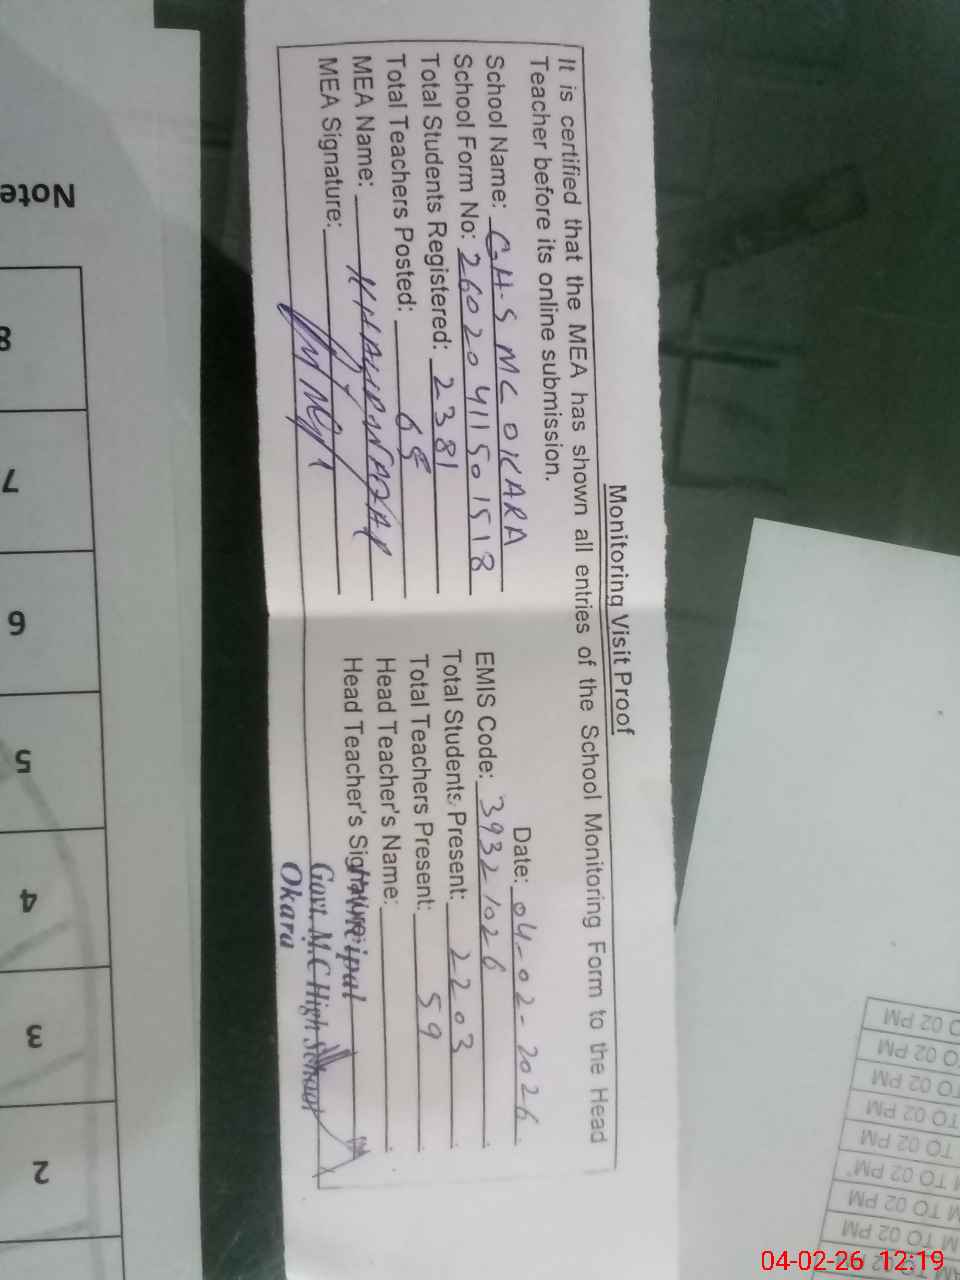 Monitoring Visit Proof
It is certified that the MEA has shown all entries of the School Monitoring Form to the Head
Teacher before its online submission.
Date: 04-02-2026
School Name: GHS MC OKARA
EMIS Code: 39321026
School Form No: 26020411501518
Total Students Present: 2203
Total Students Registered: 2381
Total Teachers Present: 59
Total Teachers Posted: 68
Head Teacher's Name:
MEA Name:
Head Teacher's Signature:
MEA Signature:
Principal
Govt. M.C High School
Okara
Note
8
7
6
5
4
3
2
TO 02 PM
TO 02 PM
TO 02 PM
TO 02 PM
TO 02 PM
TO 02 PM
M TO 02 PM
M TO 02 PM
AM TO 02 PM
04-02-26 12:19